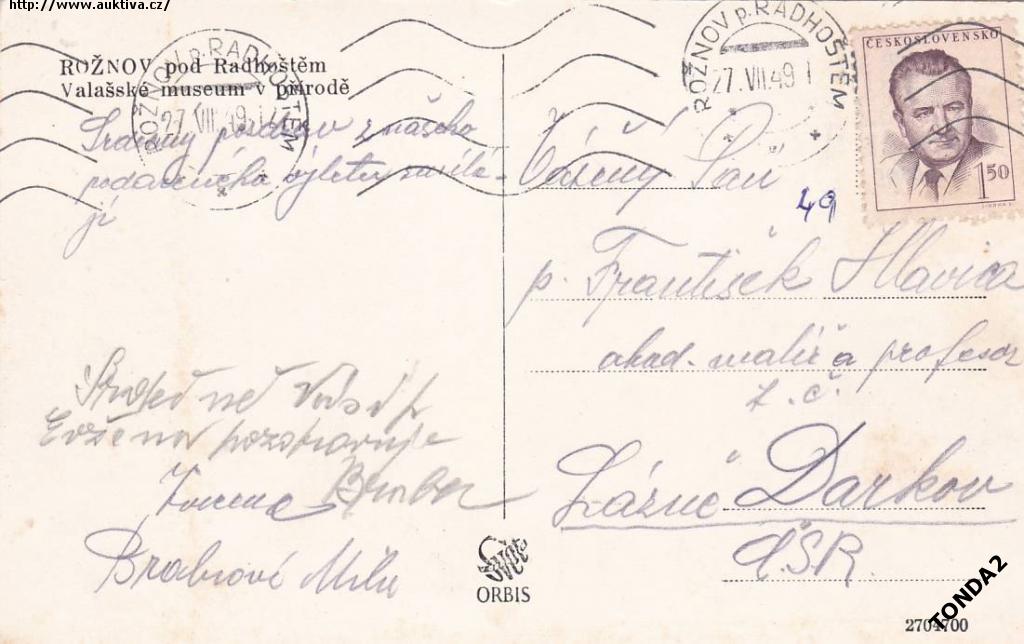 http://www.auktiva.cz/
ROŽNOV p. RADHOŠTĚM
27.VII.49
ROŽNOV p. RADHOŠTĚM
27.VII.49
ČESKOSLOVENSKO
1 50
ROŽNOV pod Radhoštěm
Valašské museum v přírodě
Srdečný pozdrav z našeho
podařeného výletu zasíla-
jí
Vážený Pan
49
p. František Hlavica
akad. malíř a profesor
t. č.
Lázně Darkov
ČSR.
pozdravuje
Brabcové
ORBIS
2704700
TONDA2